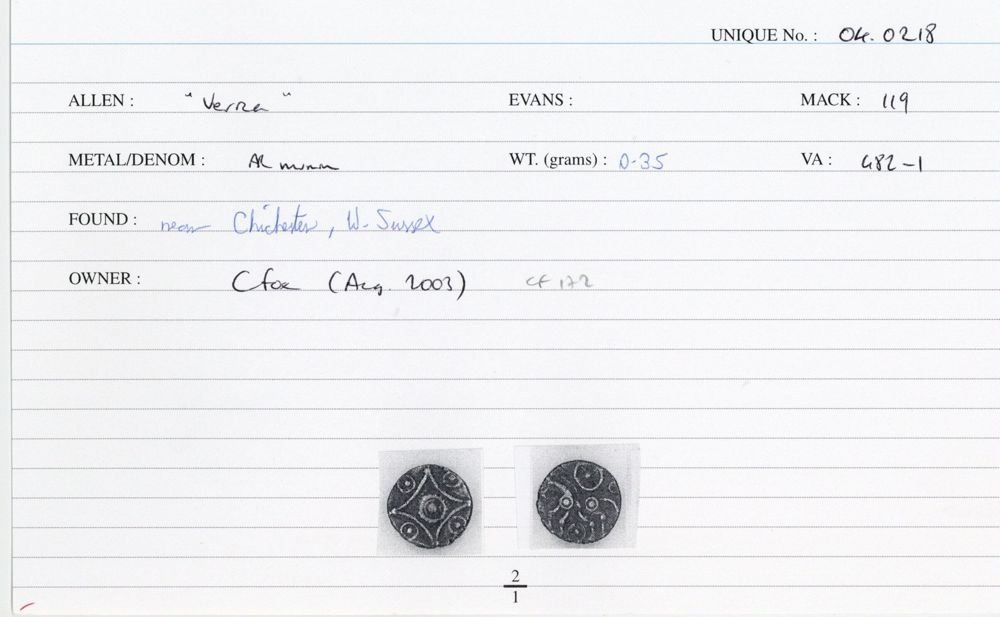 UNIQUE No. : 04.0218
ALLEN : "Verica" EVANS : MACK : 119
METAL/DENOM : AR minim WT. (grams) : 0.35 VA : 482-1
FOUND : near Chichester, W. Sussex
OWNER : C fox (Acq. 2003) CF 172
2
1